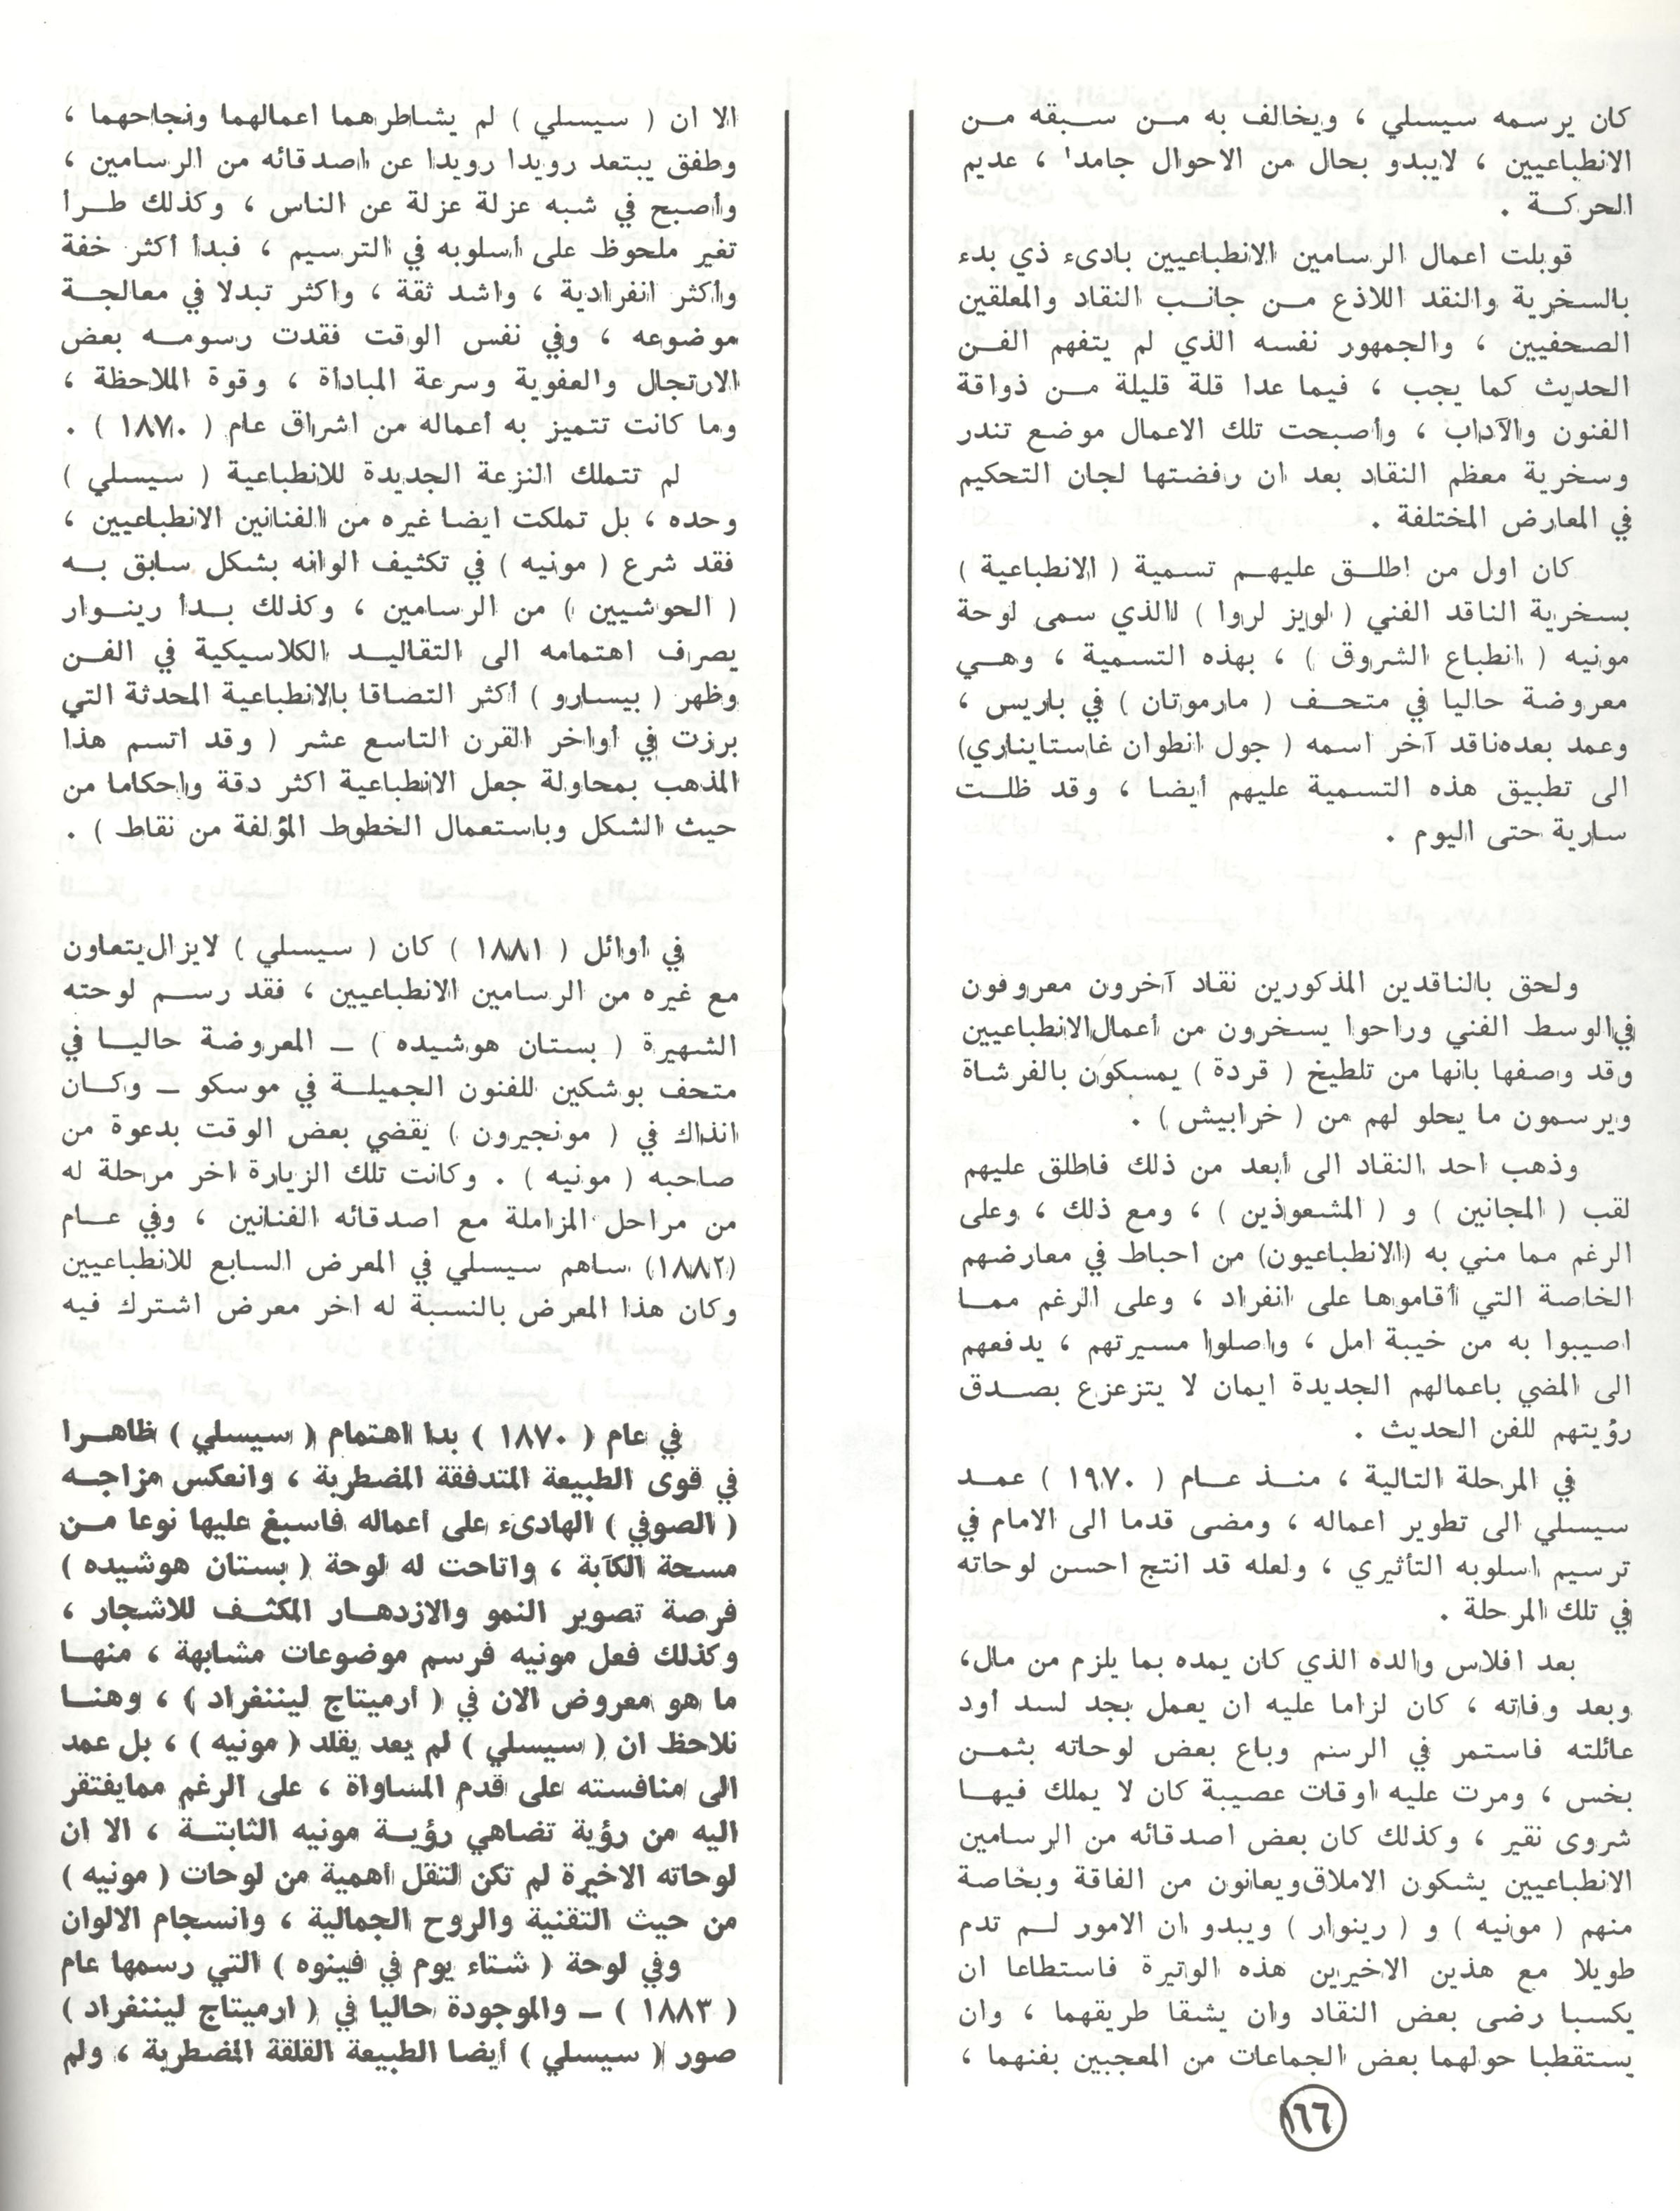 كان يرسمه سيسلي ، ويخالف به من سبقه من
الانطباعيين ، لايبدو بحال من الاحوال جامدا' ، عديم
الحركة .
قوبلت اعمال الرسامين الانطباعيين بادىء ذي بدء
بالسخرية والنقد اللاذع من جانب النقاد والمعلقين
الصحفيين ، والجمهور نفسه الذي لم يتفهم الفن
الحديث كما يجب ، فيما عدا قلة قليلة من ذواقة
الفنون والآداب ، وأصبحت تلك الاعمال موضع تندر
وسخرية معظم النقاد بعد ان رفضتها لجان التحكيم
في المعارض المختلفة .
كان اول من اطلق عليهم تسمية ( الانطباعية )
بسخرية الناقد الفني ( لويز لروا ) الذي سمى لوحة
مونيه ( انطباع الشروق ) ، بهذه التسمية ، وهي
معروضة حاليا في متحف ( مارموتان ) في باريس ،
وعمد بعده ناقد آخر اسمه ( جول انطوان غاستايناري)
الى تطبيق هذه التسمية عليهم أيضا ، وقد ظلت
سارية حتى اليوم .
ولحق بالناقدين المذكورين نقاد آخرون معروفون
في الوسط الفني وراحوا يسخرون من أعمال الانطباعيين
وقد وصفها بانها من تلطيخ ( قردة ) يمسكون بالفرشاة
ويرسمون ما يحلو لهم من ( خرابيش ) .
وذهب احد النقاد الى أبعد من ذلك فاطلق عليهم
لقب ( المجانين ) و ( المشعوذين ) ، ومع ذلك ، وعلى
الرغم مما مني به (الانطباعيون) من احباط في معارضهم
الخاصة التي أقاموها على انفراد ، وعلى الرغم مما
اصيبوا به من خيبة امل ، واصلوا مسيرتهم ، يدفعهم
الى المضي باعمالهم الجديدة ايمان لا يتزعزع بصدق
رؤيتهم للفن الحديث .
في المرحلة التالية ، منذ عام ( ١٩٧٠ ) عمد
سيسلي الى تطوير اعماله ، ومضى قدما الى الامام في
ترسيم اسلوبه التأثيري ، ولعله قد انتج احسن لوحاته
في تلك المرحلة .
بعد افلاس والده الذي كان يمده بما يلزم من مال،
وبعد وفاته ، كان لزاما عليه ان يعمل بجد لسد أود
عائلته فاستمر في الرسم وباع بعض لوحاته بثمن
بخس ، ومرت عليه اوقات عصيبة كان لا يملك فيها
شروى نقير ، وكذلك كان بعض اصدقائه من الرسامين
الانطباعيين يشكون الاملاق ويعانون من الفاقة وبخاصة
منهم ( مونيه ) و ( رينوار ) ويبدو ان الامور لم تدم
طويلا مع هذين الاخيرين هذه الوتيرة فاستطاعا ان
يكسبا رضى بعض النقاد وان يشقا طريقهما ، وان
يستقطبا حولهما بعض الجماعات من المعجبين بفنهما ،
الا ان ( سيسلي ) لم يشاطرهما اعمالهما ونجاحهما ،
وطفق يبتعد رويدا رويدا عن اصدقائه من الرسامين ،
وأصبح في شبه عزلة عزلة عن الناس ، وكذلك طرأ
تغير ملحوظ على أسلوبه في الترسيم ، فبدأ أكثر خفة
وأكثر انفرادية ، واشد ثقة ، واكثر تبدلا في معالجة
موضوعه ، وفي نفس الوقت فقدت رسومه بعض
الارتجال والعفوية وسرعة المبادأة ، وقوة الملاحظة ،
وما كانت تتميز به أعماله من اشراق عام ( ١٨٧٠ ) .
لم تتملك النزعة الجديدة للانطباعية ( سيسلي )
وحده ، بل تملكت ايضا غيره من الفنانين الانطباعيين ،
فقد شرع ( مونيه ) في تكثيف الوانه بشكل سابق به
( الحوشيين ) من الرسامين ، وكذلك بدأ رينوار
يصرف اهتمامه الى التقاليد الكلاسيكية في الفن
وظهر ( بيسارو ) أكثر التصاقا بالانطباعية المحدثة التي
برزت في أواخر القرن التاسع عشر ( وقد اتسم هذا
المذهب بمحاولة جعل الانطباعية اكثر دقة واحكاما من
حيث الشكل وباستعمال الخطوط المؤلفة من نقاط ) .
في أوائل ( ١٨٨١ ) كان ( سيسلي ) لايزال يتعاون
مع غيره من الرسامين الانطباعيين ، فقد رسم لوحته
الشهيرة ( بستان هوشيده ) ــ المعروضة حاليا في
متحف بوشكين للفنون الجميلة في موسكو ــ وكان
انذاك في ( مونجيرون ) يقضي بعض الوقت بدعوة من
صاحبه ( مونيه ) . وكانت تلك الزيارة اخر مرحلة له
من مراحل المزاملة مع اصدقائه الفنانين ، وفي عام
(١٨٨٢) ساهم سيسلي في المعرض السابع للانطباعيين
وكان هذا المعرض بالنسبة له اخر معرض اشترك فيه
في عام ( ١٨٧٠ ) بدا اهتمام ( سيسلي ) ظاهرا
في قوى الطبيعة المتدفقة المضطربة ، وانعكس مزاجه
( الصوفي ) الهادىء على أعماله فاسبغ عليها نوعا من
مسحة الكآبة ، واتاحت له لوحة ( بستان هوشيده )
فرصة تصوير النمو والازدهار المكثف للاشجار ،
وكذلك فعل مونيه فرسم موضوعات مشابهة ، منها
ما هو معروض الان في ( أرميتاج ليننغراد ) ، وهنا
نلاحظ ان ( سيسلي ) لم يعد يقلد ( مونيه ) ، بل عمد
الى منافسته على قدم المساواة ، على الرغم ممايفتقر
اليه من رؤية تضاهي رؤية مونيه الثابتة ، الا ان
لوحاته الاخيرة لم تكن لتقل أهمية من لوحات ( مونيه )
من حيث التقنية والروح الجمالية ، وانسجام الالوان
وفي لوحة ( شتاء يوم في فينوه ) التي رسمها عام
( ١٨٨٣ ) ــ والموجودة حاليا في ( ارميتاج ليننغراد )
صور ( سيسلي ) أيضا الطبيعة القلقة المضطربة ، ولم
١٦٦